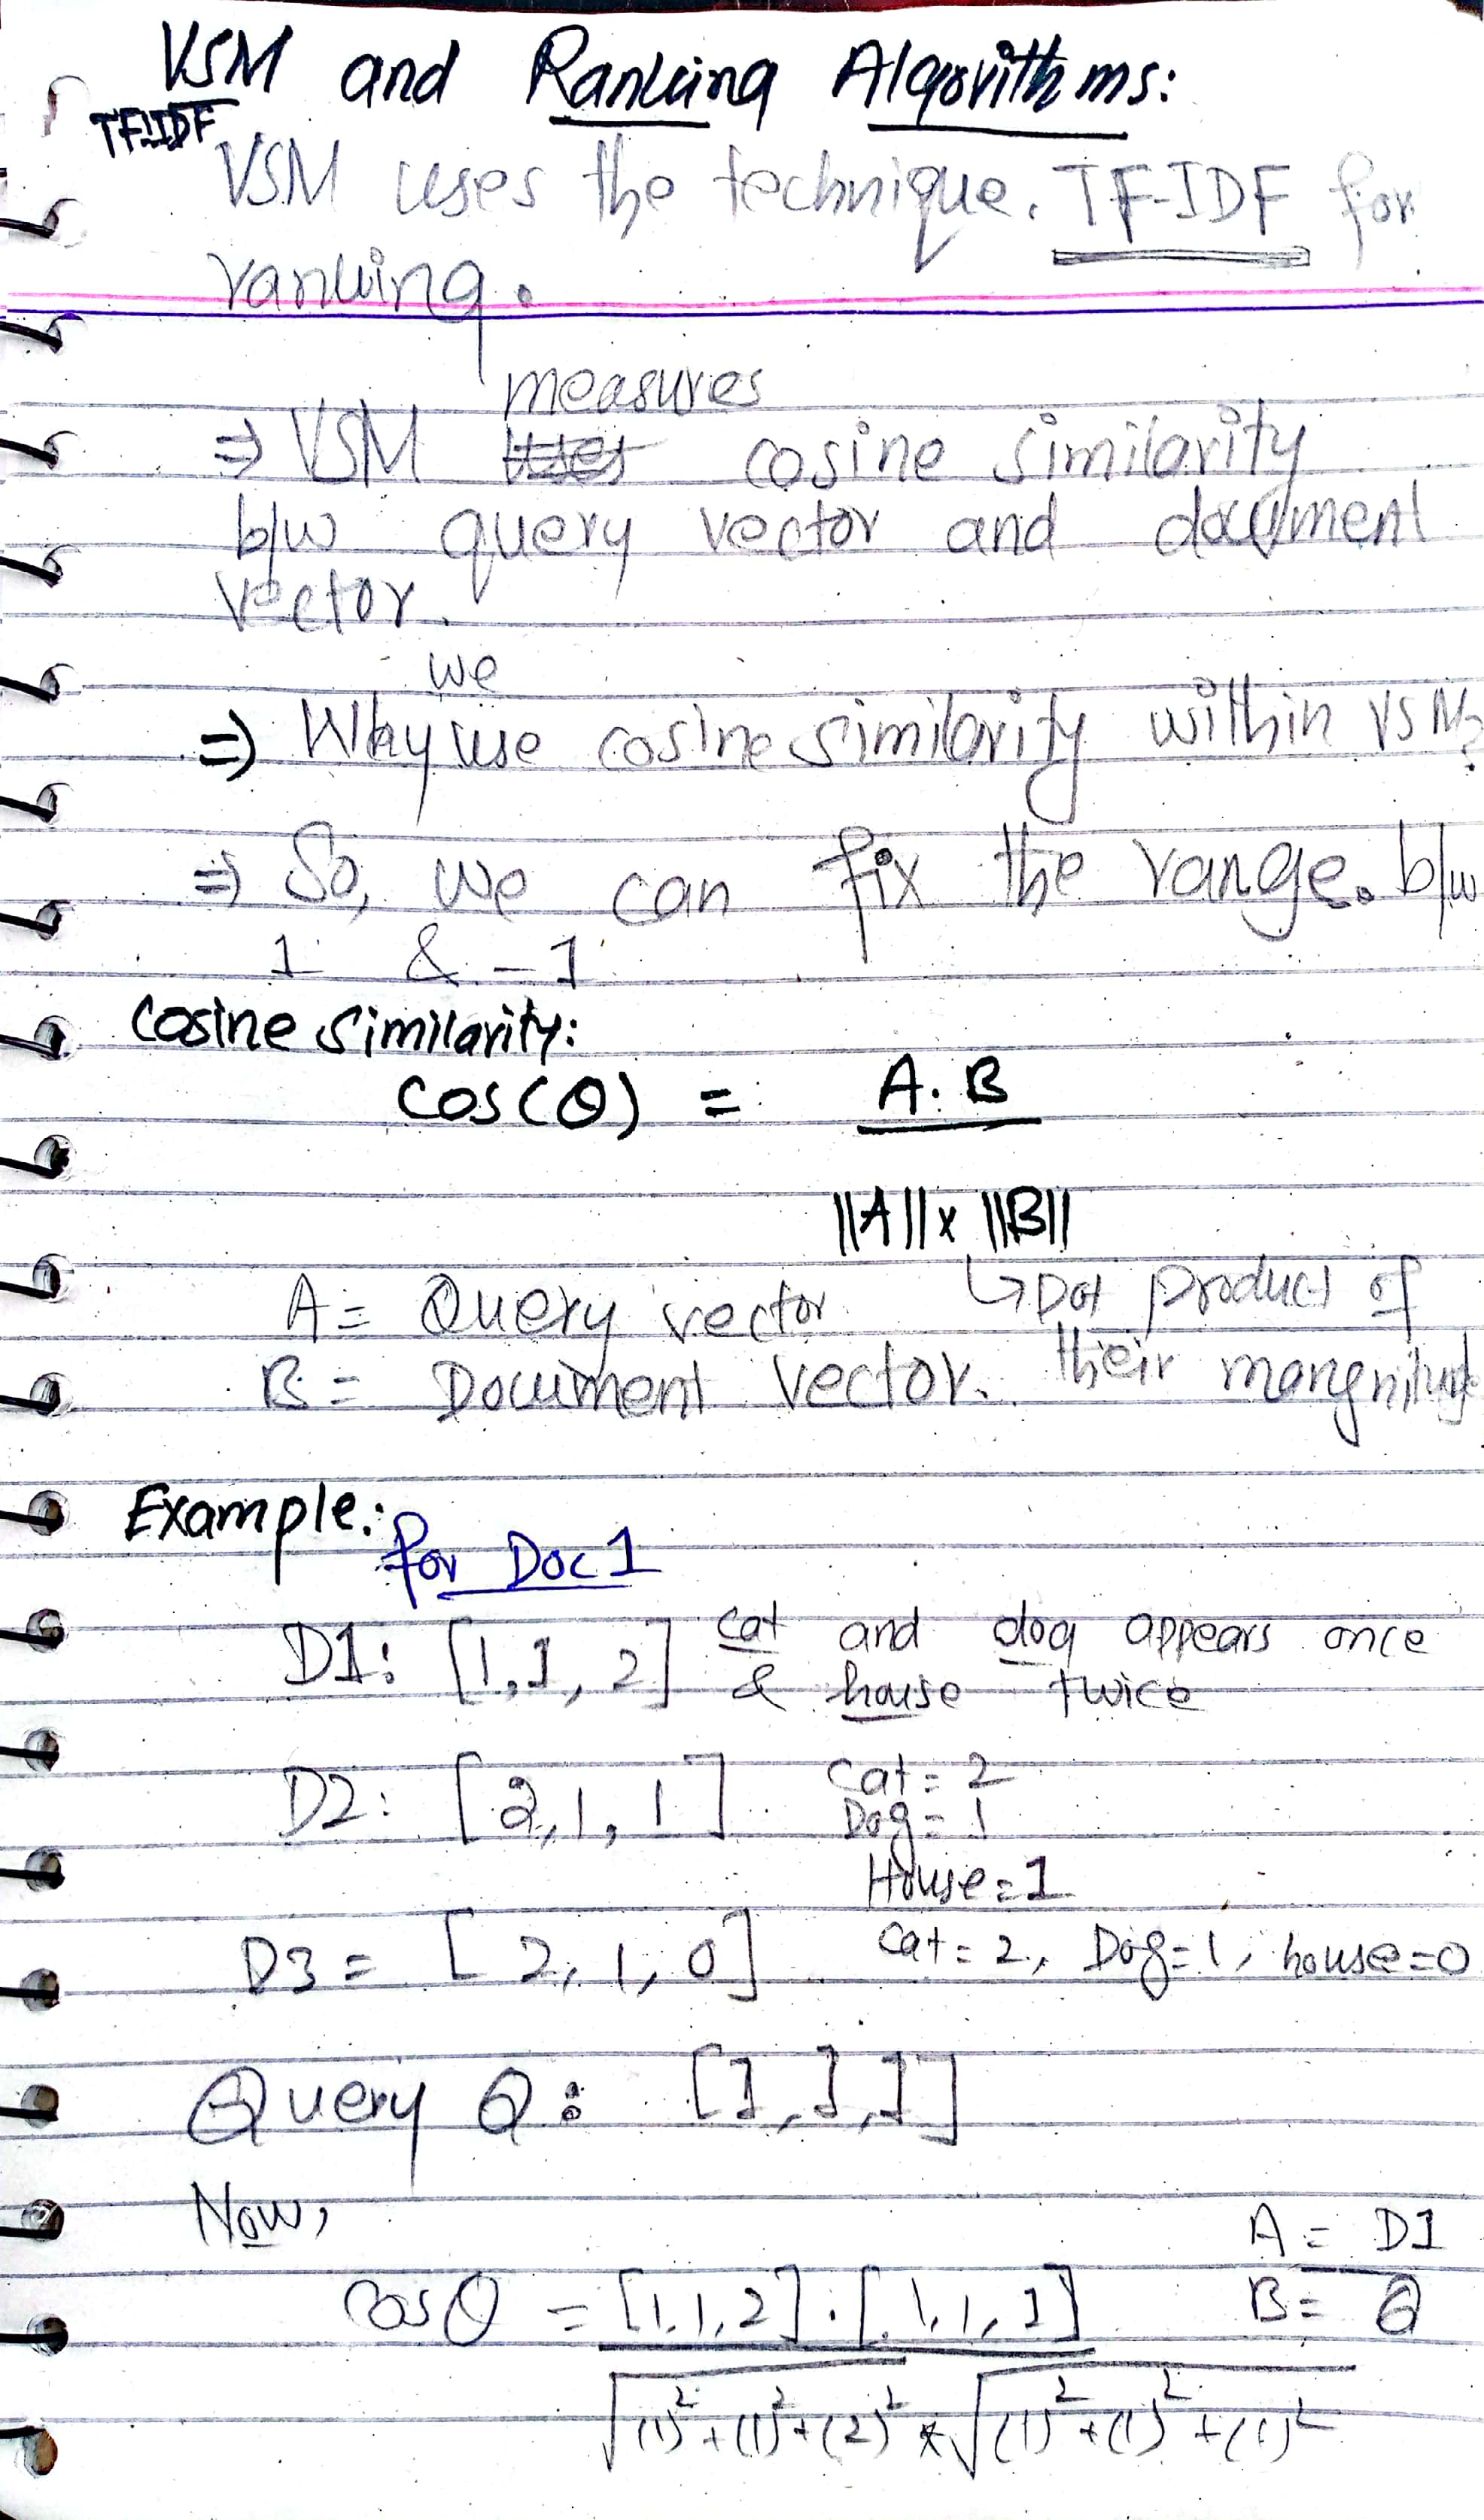 VSM and Ranking Algorithms:
TF-IDF
VSM uses the technique. TF-IDF for
ranking.
measures
⇒ VSM cosine similarity
b/w query vector and document
vector.
we
⇒ Why use cosine similarity within VSM?
⇒ So, we can fix the range. b/w
1 & -1
Cosine Similarity:
Cos(θ) = A.B
||A|| x ||B||
A = Query vector ↳ Dot product of
B = Document vector. their mangnitude
Example:
for Doc 1
D1: [1, 1, 2] cat and dog appears once
& house twice
D2: [2, 1, 1] Cat = 2
Dog = 1
House = 1
D3 = [2, 1, 0] Cat = 2, Dog = 1, house = 0
Query Q: [1, 1, 1]
Now, A = D1
Cosθ = [1, 1, 2] . [1, 1, 1] B = Q
√(1)²+(1)²+(2)² * √(1)²+(1)²+(1)²